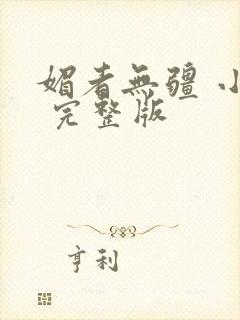 媚者無疆 小
完整版
亨利